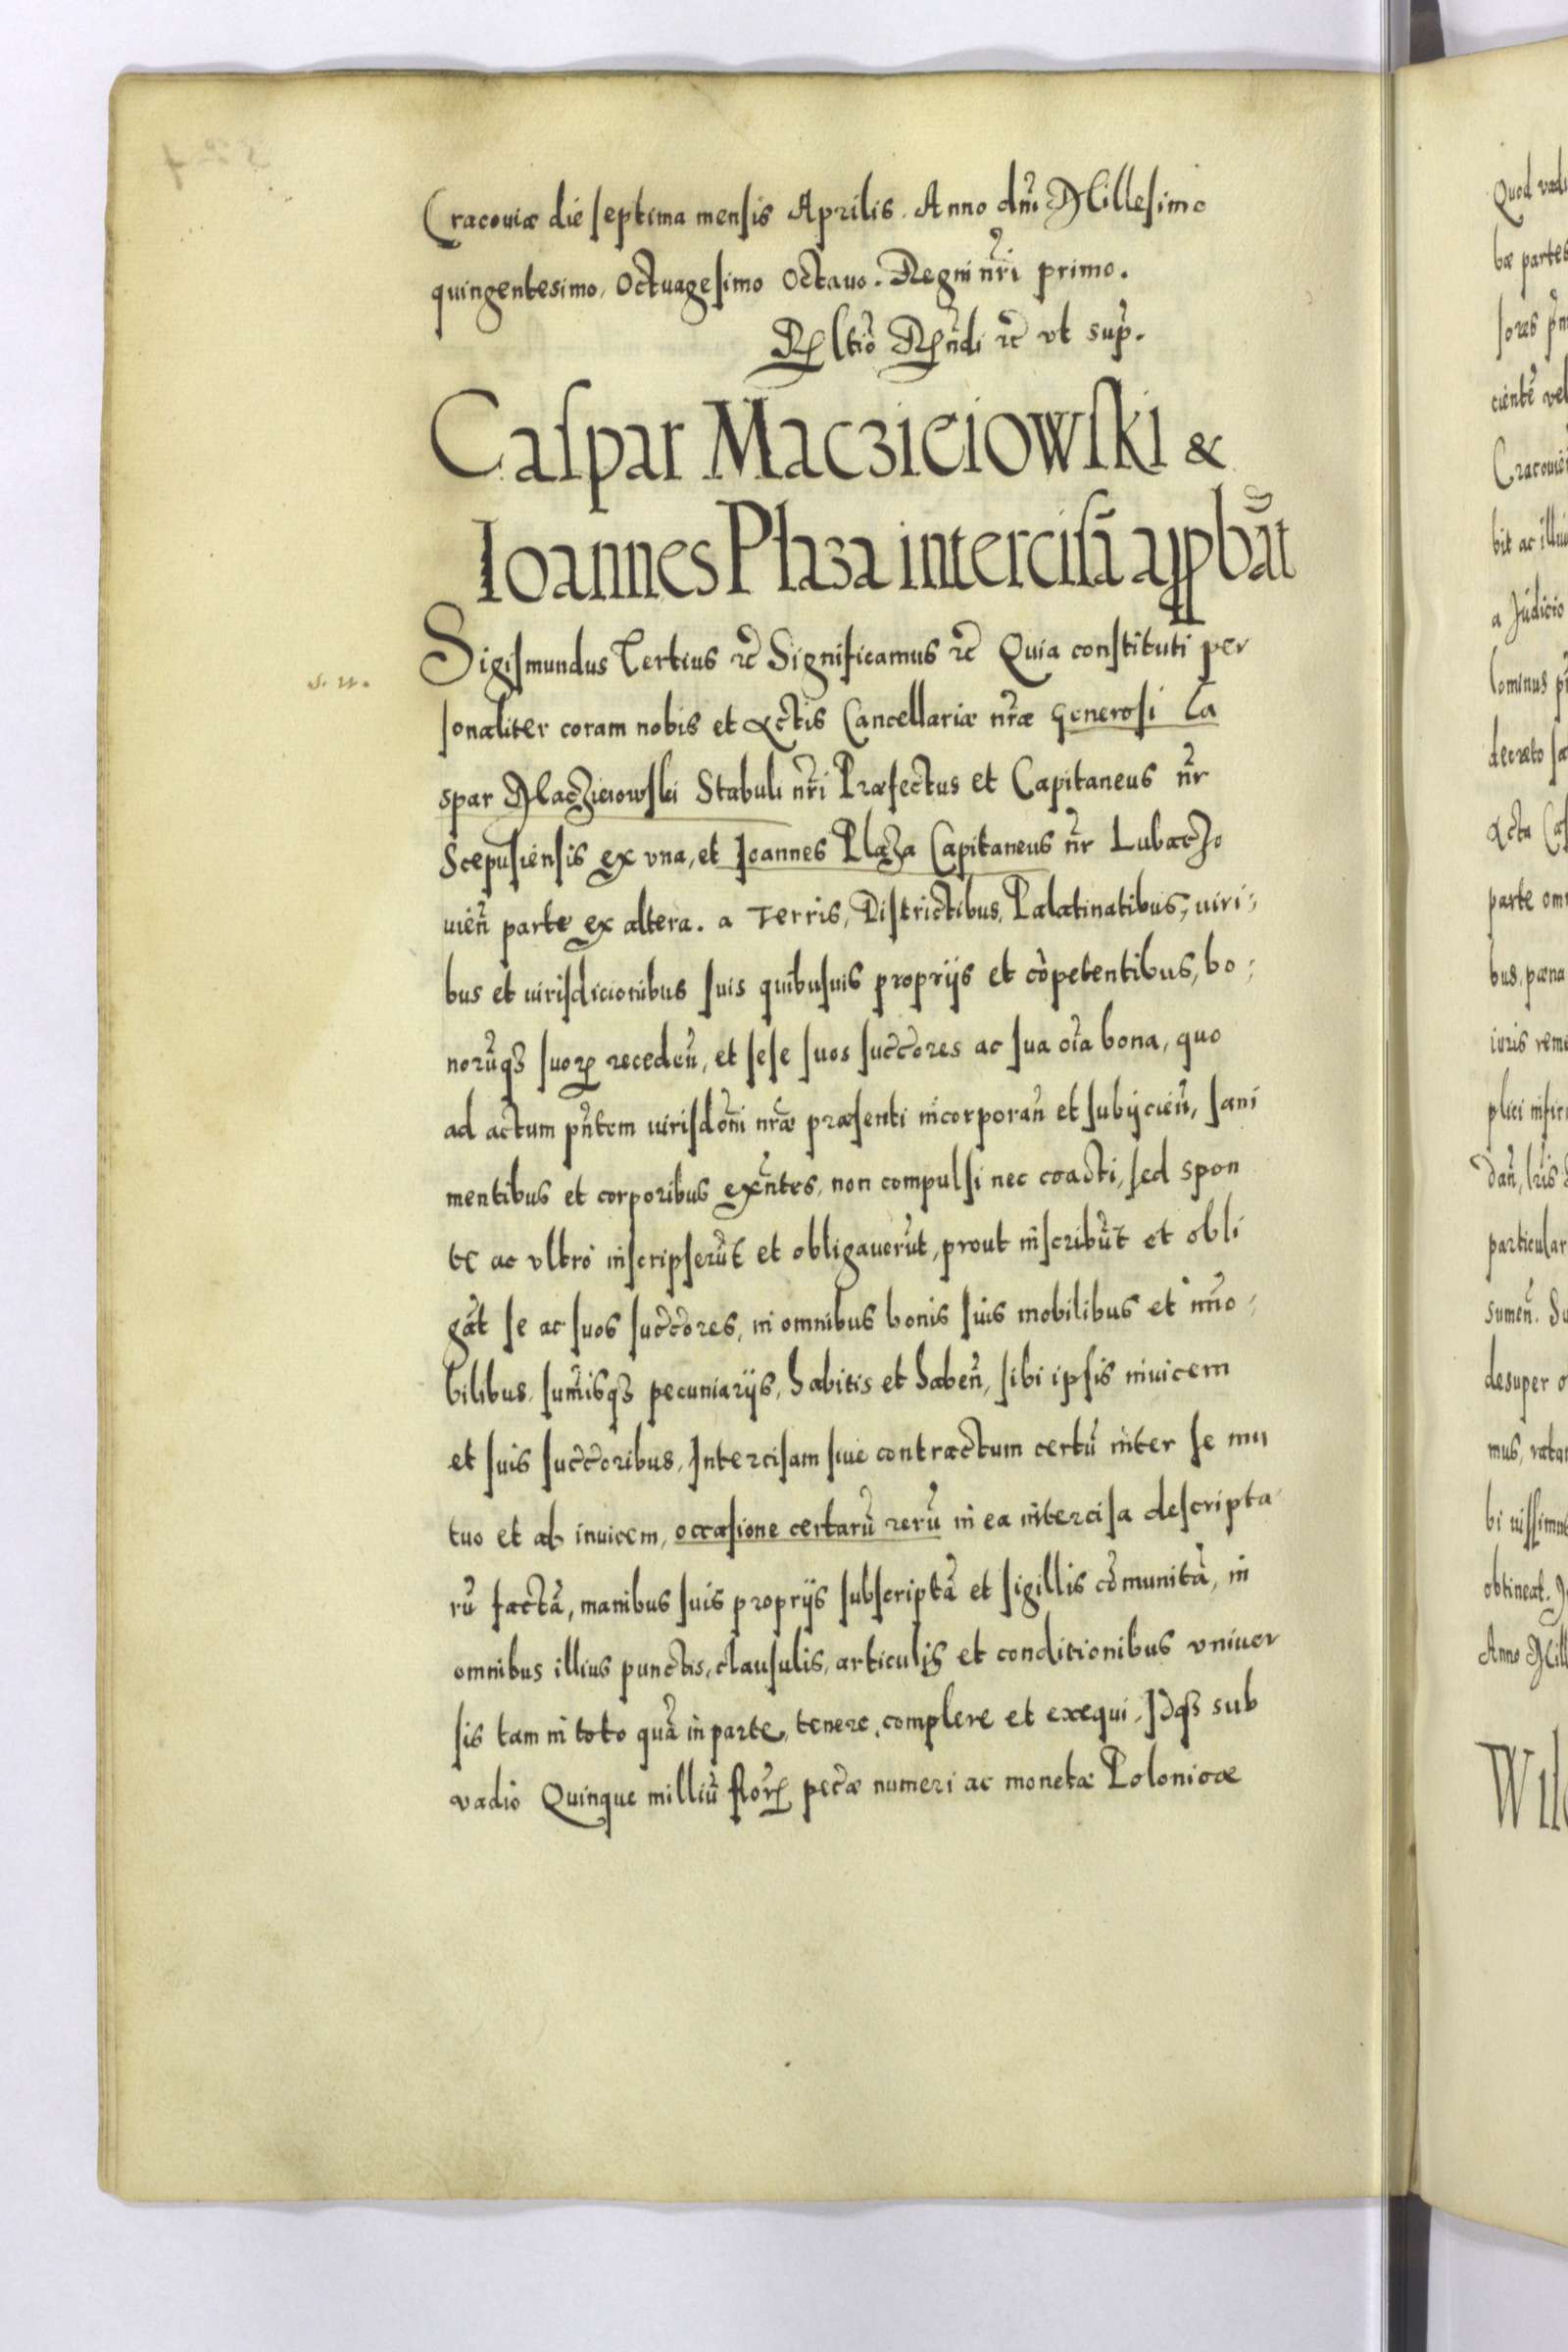 Cracouiæ die septima mensis Aprilis. Anno dñi Millesimo
quingentesimo, Octuagesimo Octauo. Regni nr̃i primo.
Rltio Rñdi ꝛc̃ vt sup̃.
Caspar Maczieiowski &
Ioannes Plaza intercisã appbãt
Sigismundus Tertius ꝛc̃ Significamus ꝛc̃ Quia constituti per
s. w.
sonaliter coram nobis et Actis Cancellariæ nr̃æ Generosi Ca
spar Maczieiowski Stabuli nr̃i Præfectus et Capitaneus nr̃
Scepusiensis ex vna, et Ioannes Plaza Capitaneus nr̃ Lubaczo
uień parte ex altera. a Terris, Districtibus, Palatinatibus, iuri;
bus et iurisdicionibus suis quibusuis proprijs et cõpetentibus, bo;
norũqꝫ suoꝝ recedeñ, et sese suos succ̃ores ac sua oĩa bona, quo
ad actum pñtem iurisdoñi nr̃æ præsenti incorporañ et subijcieñ, sani
mentibus et corporibus exñtes, non compulsi nec coacti, sed spon
te ac vltro inscripserũt et obligauerũt, prout inscribũt et obli
gãt se ac suos succ̃ores, in omnibus bonis suis mobilibus et im̃o;
bilibus, sum̃isqꝫ pecuniarijs, habitis et habeñ, sibi ipsis inuicem
et suis succ̃oribus, Intercisam siue contractum certũ inter se mu
tuo et ab inuicem, occasione certarũ rerũ in ea intercisa descripta
rũ factã, manibus suis proprijs subscriptã et sigillis cõmunitã, in
omnibus illius punctis, clausulis, articulis et conditionibus vniuer
sis tam in toto quã in parte, tenere, complere et exequi, Idqꝫ sub
vadio Quinque milliũ florꝝ pecc̃æ numeri ac monetæ Polonicæ